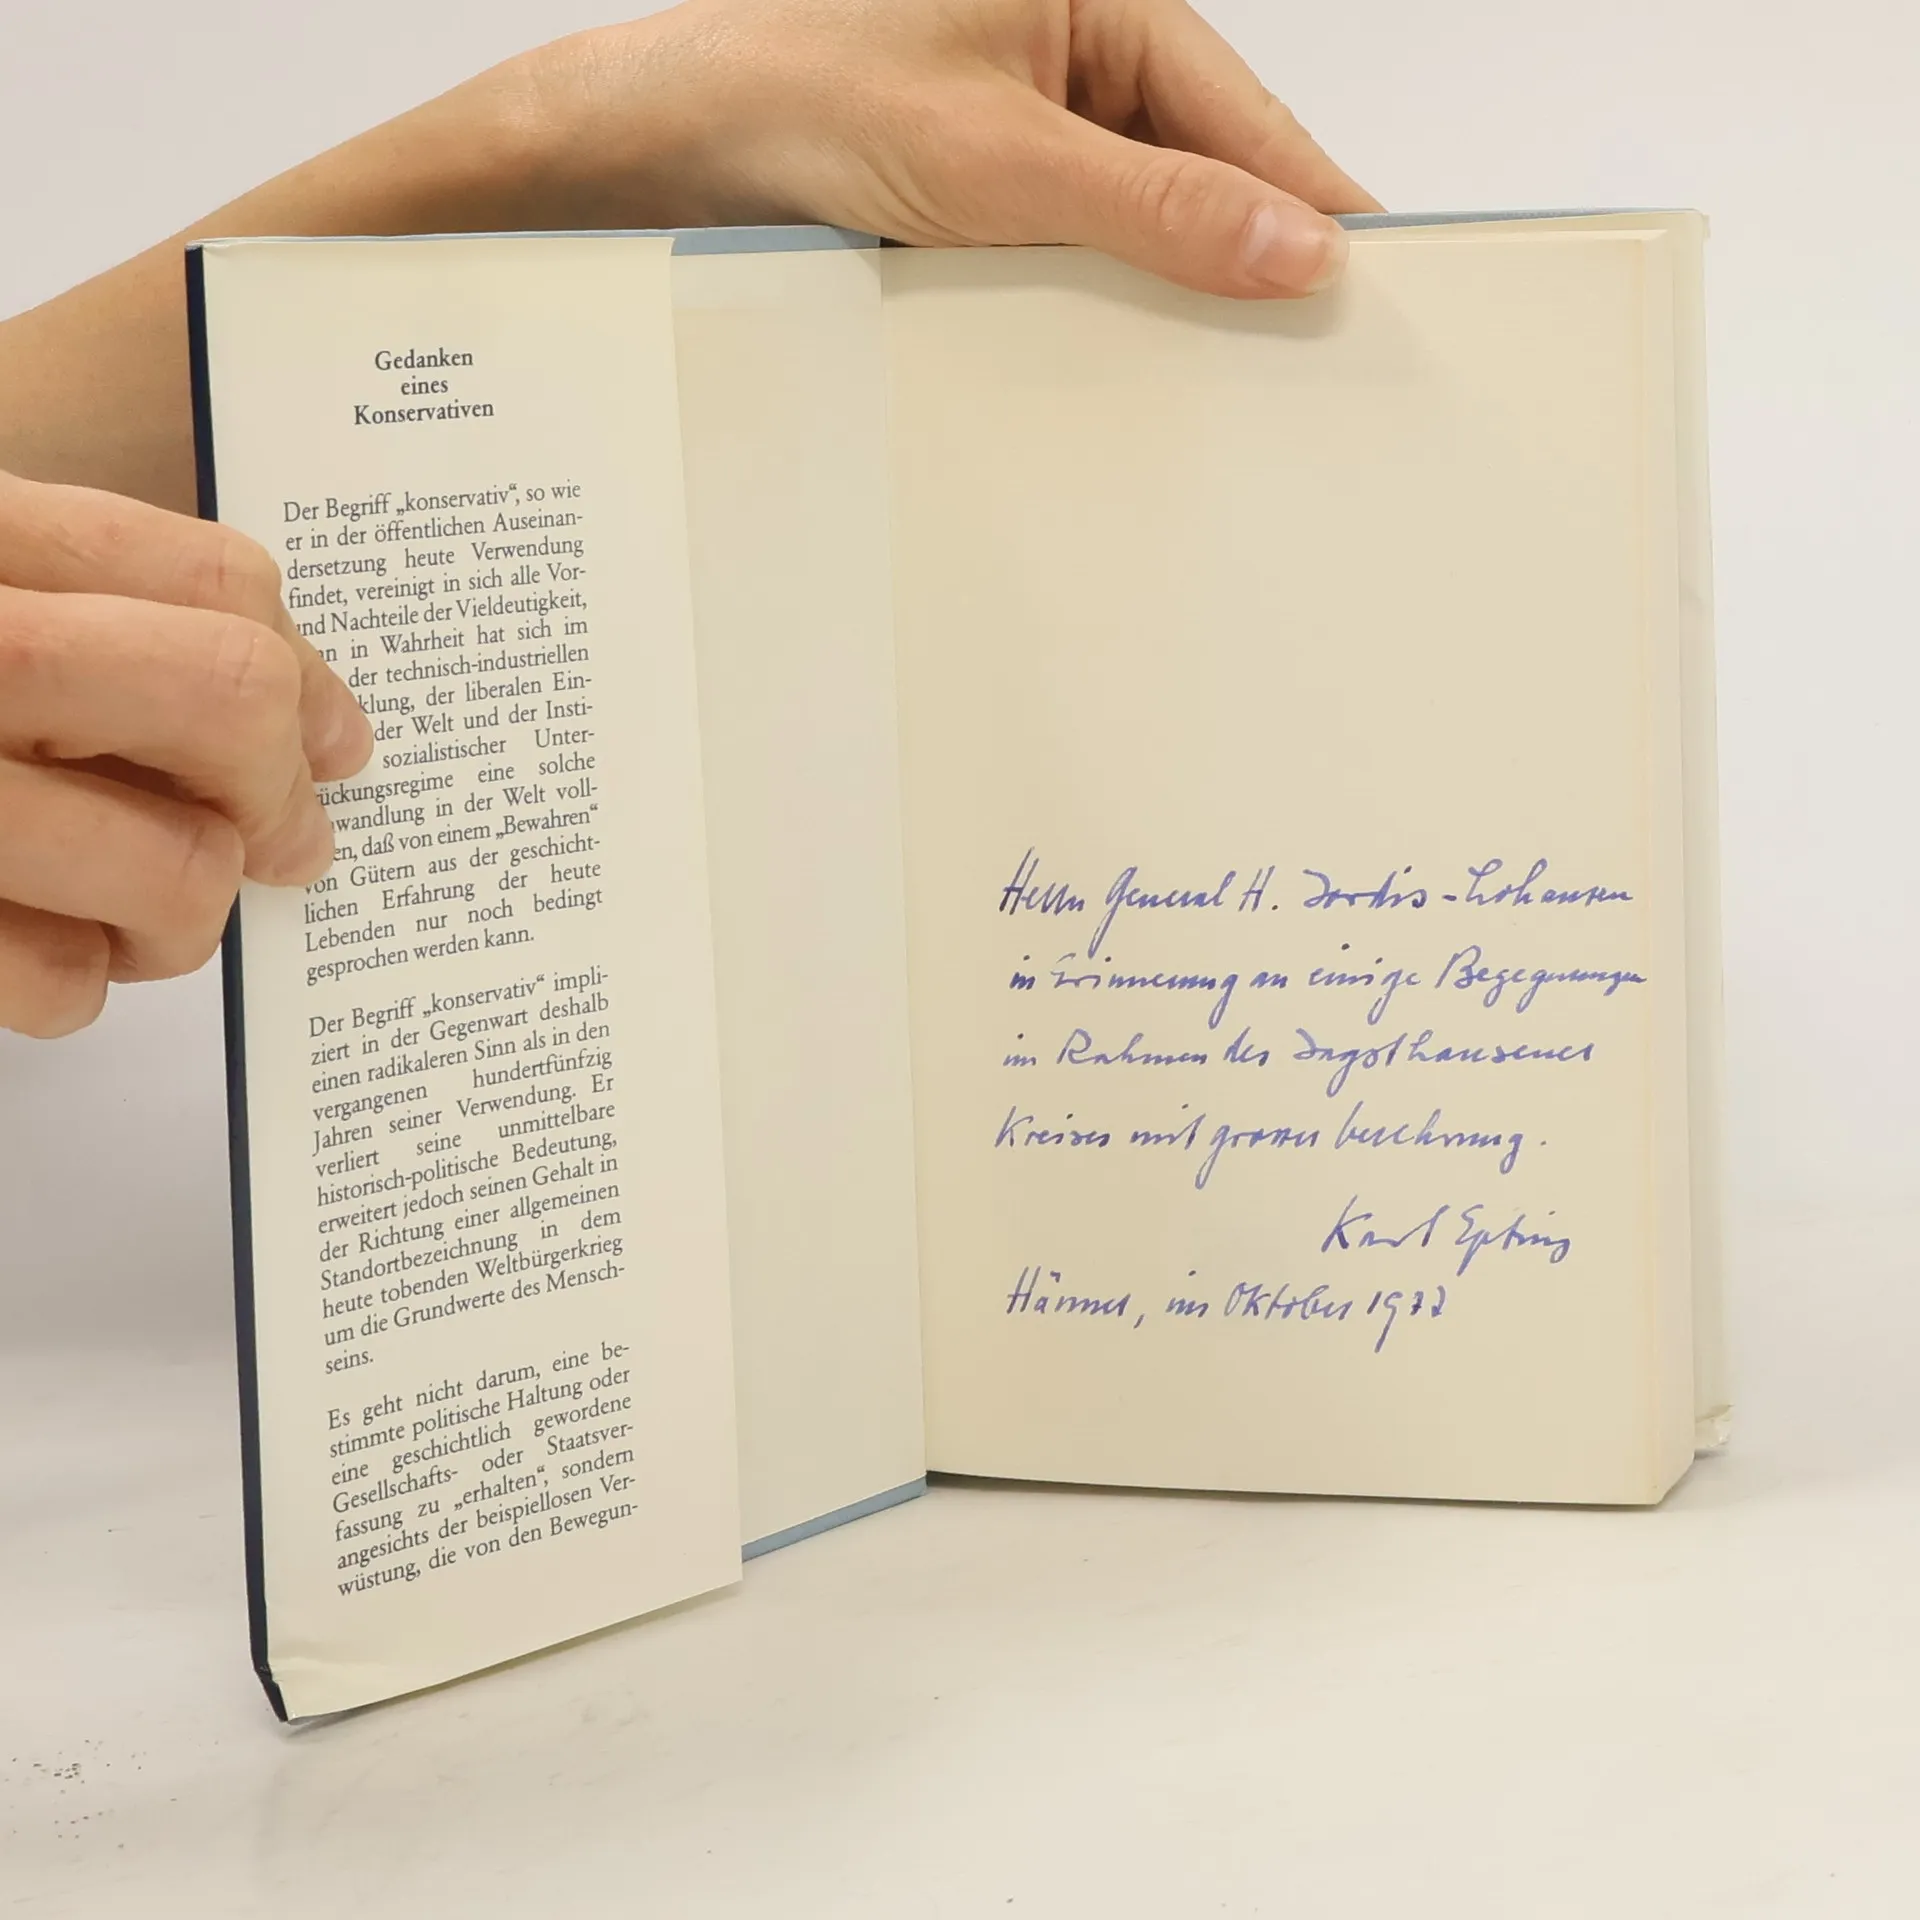 Gedanken
eines
Konservativen
Der Begriff „konservativ“, so wie
er in der öffentlichen Auseinan-
dersetzung heute Verwendung
findet, vereinigt in sich alle Vor-
und Nachteile der Vieldeutigkeit,
in Wahrheit hat sich im
der technisch-industriellen
klung, der liberalen Ein-
der Welt und der Insti-
sozialistischer Unter-
rückungsregime eine solche
wandlung in der Welt voll-
en, daß von einem „Bewahren“
von Gütern aus der geschicht-
lichen Erfahrung der heute
Lebenden nur noch bedingt
gesprochen werden kann.
Der Begriff „konservativ“ impli-
ziert in der Gegenwart deshalb
einen radikaleren Sinn als in den
vergangenen hundertfünfzig
Jahren seiner Verwendung. Er
verliert seine unmittelbare
historisch-politische Bedeutung,
erweitert jedoch seinen Gehalt in
der Richtung einer allgemeinen
Standortbezeichnung in dem
heute tobenden Weltbürgerkrieg
um die Grundwerte des Mensch-
seins.
Es geht nicht darum, eine be-
stimmte politische Haltung oder
eine geschichtlich gewordene
Gesellschafts- oder Staatsver-
fassung zu „erhalten“, sondern
angesichts der beispiellosen Ver-
wüstung, die von den Bewegun-
Herrn General H. Jordis-Lohausen
in Erinnerung an einige Begegnungen
im Rahmen des Jagsthausener
Kreises mit grosser Verehrung.
Karl Epting
Hänner, im Oktober 1977